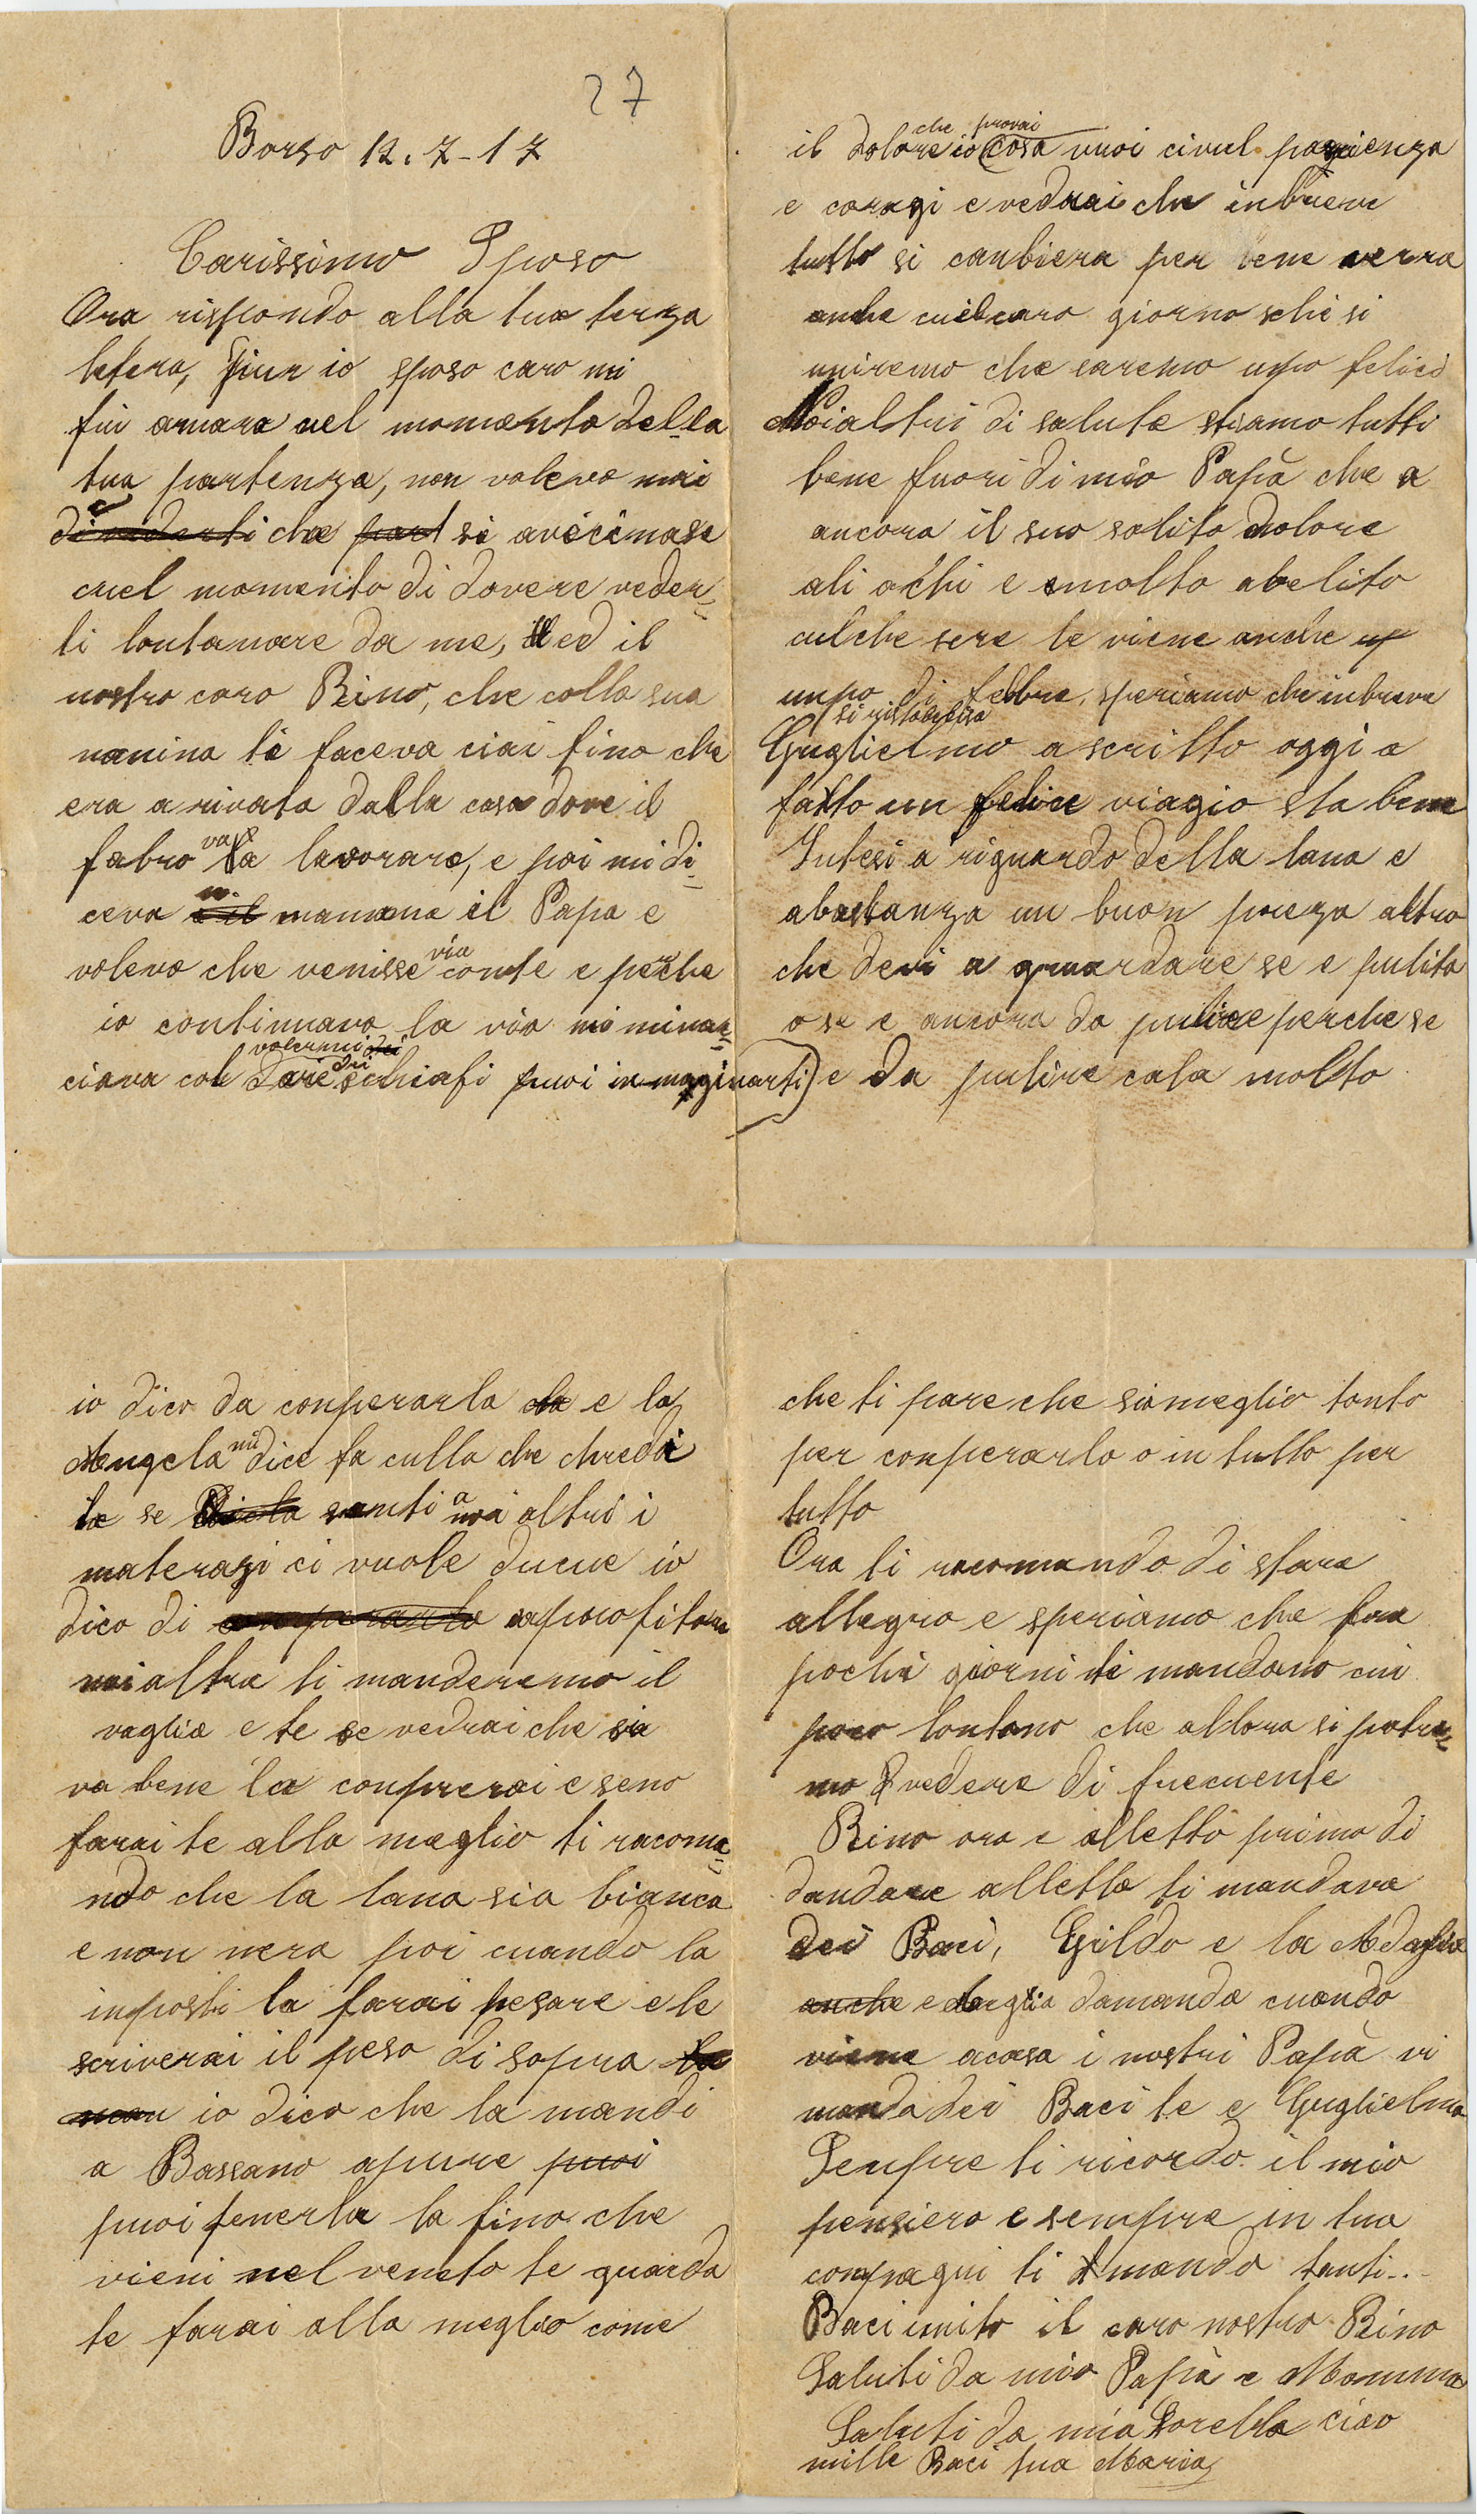 27
Borso 12.7-17
Carissimo Sposo
Ora rispondo alla tua terza
letera, io sposo caro mi
fu amara nel momento della
tua partenza, non voleva mai
che si avicinase
cuel momento di dovere veder=
ti lontanare da me, ed il
nostro caro Rino, che colla sua
manina ti faceva ciai fino che
era a rivata dalla casa dove il
fabro va a lavorare, e poi mi di=
ceva mamma il Papa e
voleva che venisse via conte e perche
io continuavo la via mi minac=
ciava col volermi dare dei schiafi puoi inmaginarti
il dolore che provai io cosa vuoi civul pazienza
e coragi e vedrai che inbreve
tutto si canbiera per bene verra
anche cuel caro giorno che si
uniremo che saremo unpo felici
Noialtri di salute stiamo tutti
bene fuori di mio Papà che a
ancora il suo solito dolore
ali ochi e molto abelito
culche sere le viene anche
unpo di febbre, speriamo che inbreve
si ristabilisa
Guglielmo a scritto oggi a
fatto un felice viagio sta bene
Intesi a riguardo della lana e
abastanza un buon prezo altro
che devi a guardare se e pulita
o se e ancora da pulire perche se
e da pulire cala molto
io dico da conperarla e la
Angela mi dice fa culla che chredi
te se santi a noi altri i
materazi ci vuole ducue io
dico di aprofitare
noi altre ti manderemo il
vaglia e te se vedrai che sia
va bene la conprerai e seno
farai te alla meglio ti racoma=
ndo che la lana sia bianca
e non nera poi cuando la
inposti la farai pesare e le
scriverai il peso di sopra la
io dico che la mandi
a Bassano apure puoi
puoi tenerla la fino che
vieni nel veneto te guarda
te farai alla meglio come
che ti pare che sia meglio tanto
per conperarla o in tutto per
tutto
Ora ti racomando di stare
allegro e speriamo che fra
pochi giorni ti mandano cui
poco lontano che allora si potre=
mo vedere di frecuente
Rino ora e alletto prima di
dandare alletto ti mandava
dei Baci, Gildo e la Adaglia
anche e damanda cuando
viene acasa i nostri Papà vi
manda dei Baci te e Guglielmo
Senpre ti ricordo il mio
pensiero e sempre in tua
conpagni ti mando tanti...
Baci unito il caro nostro Rino
Saluti da mio Papà e Mamma
Saluti da mia Sorella ciao
mille Baci tua Maria